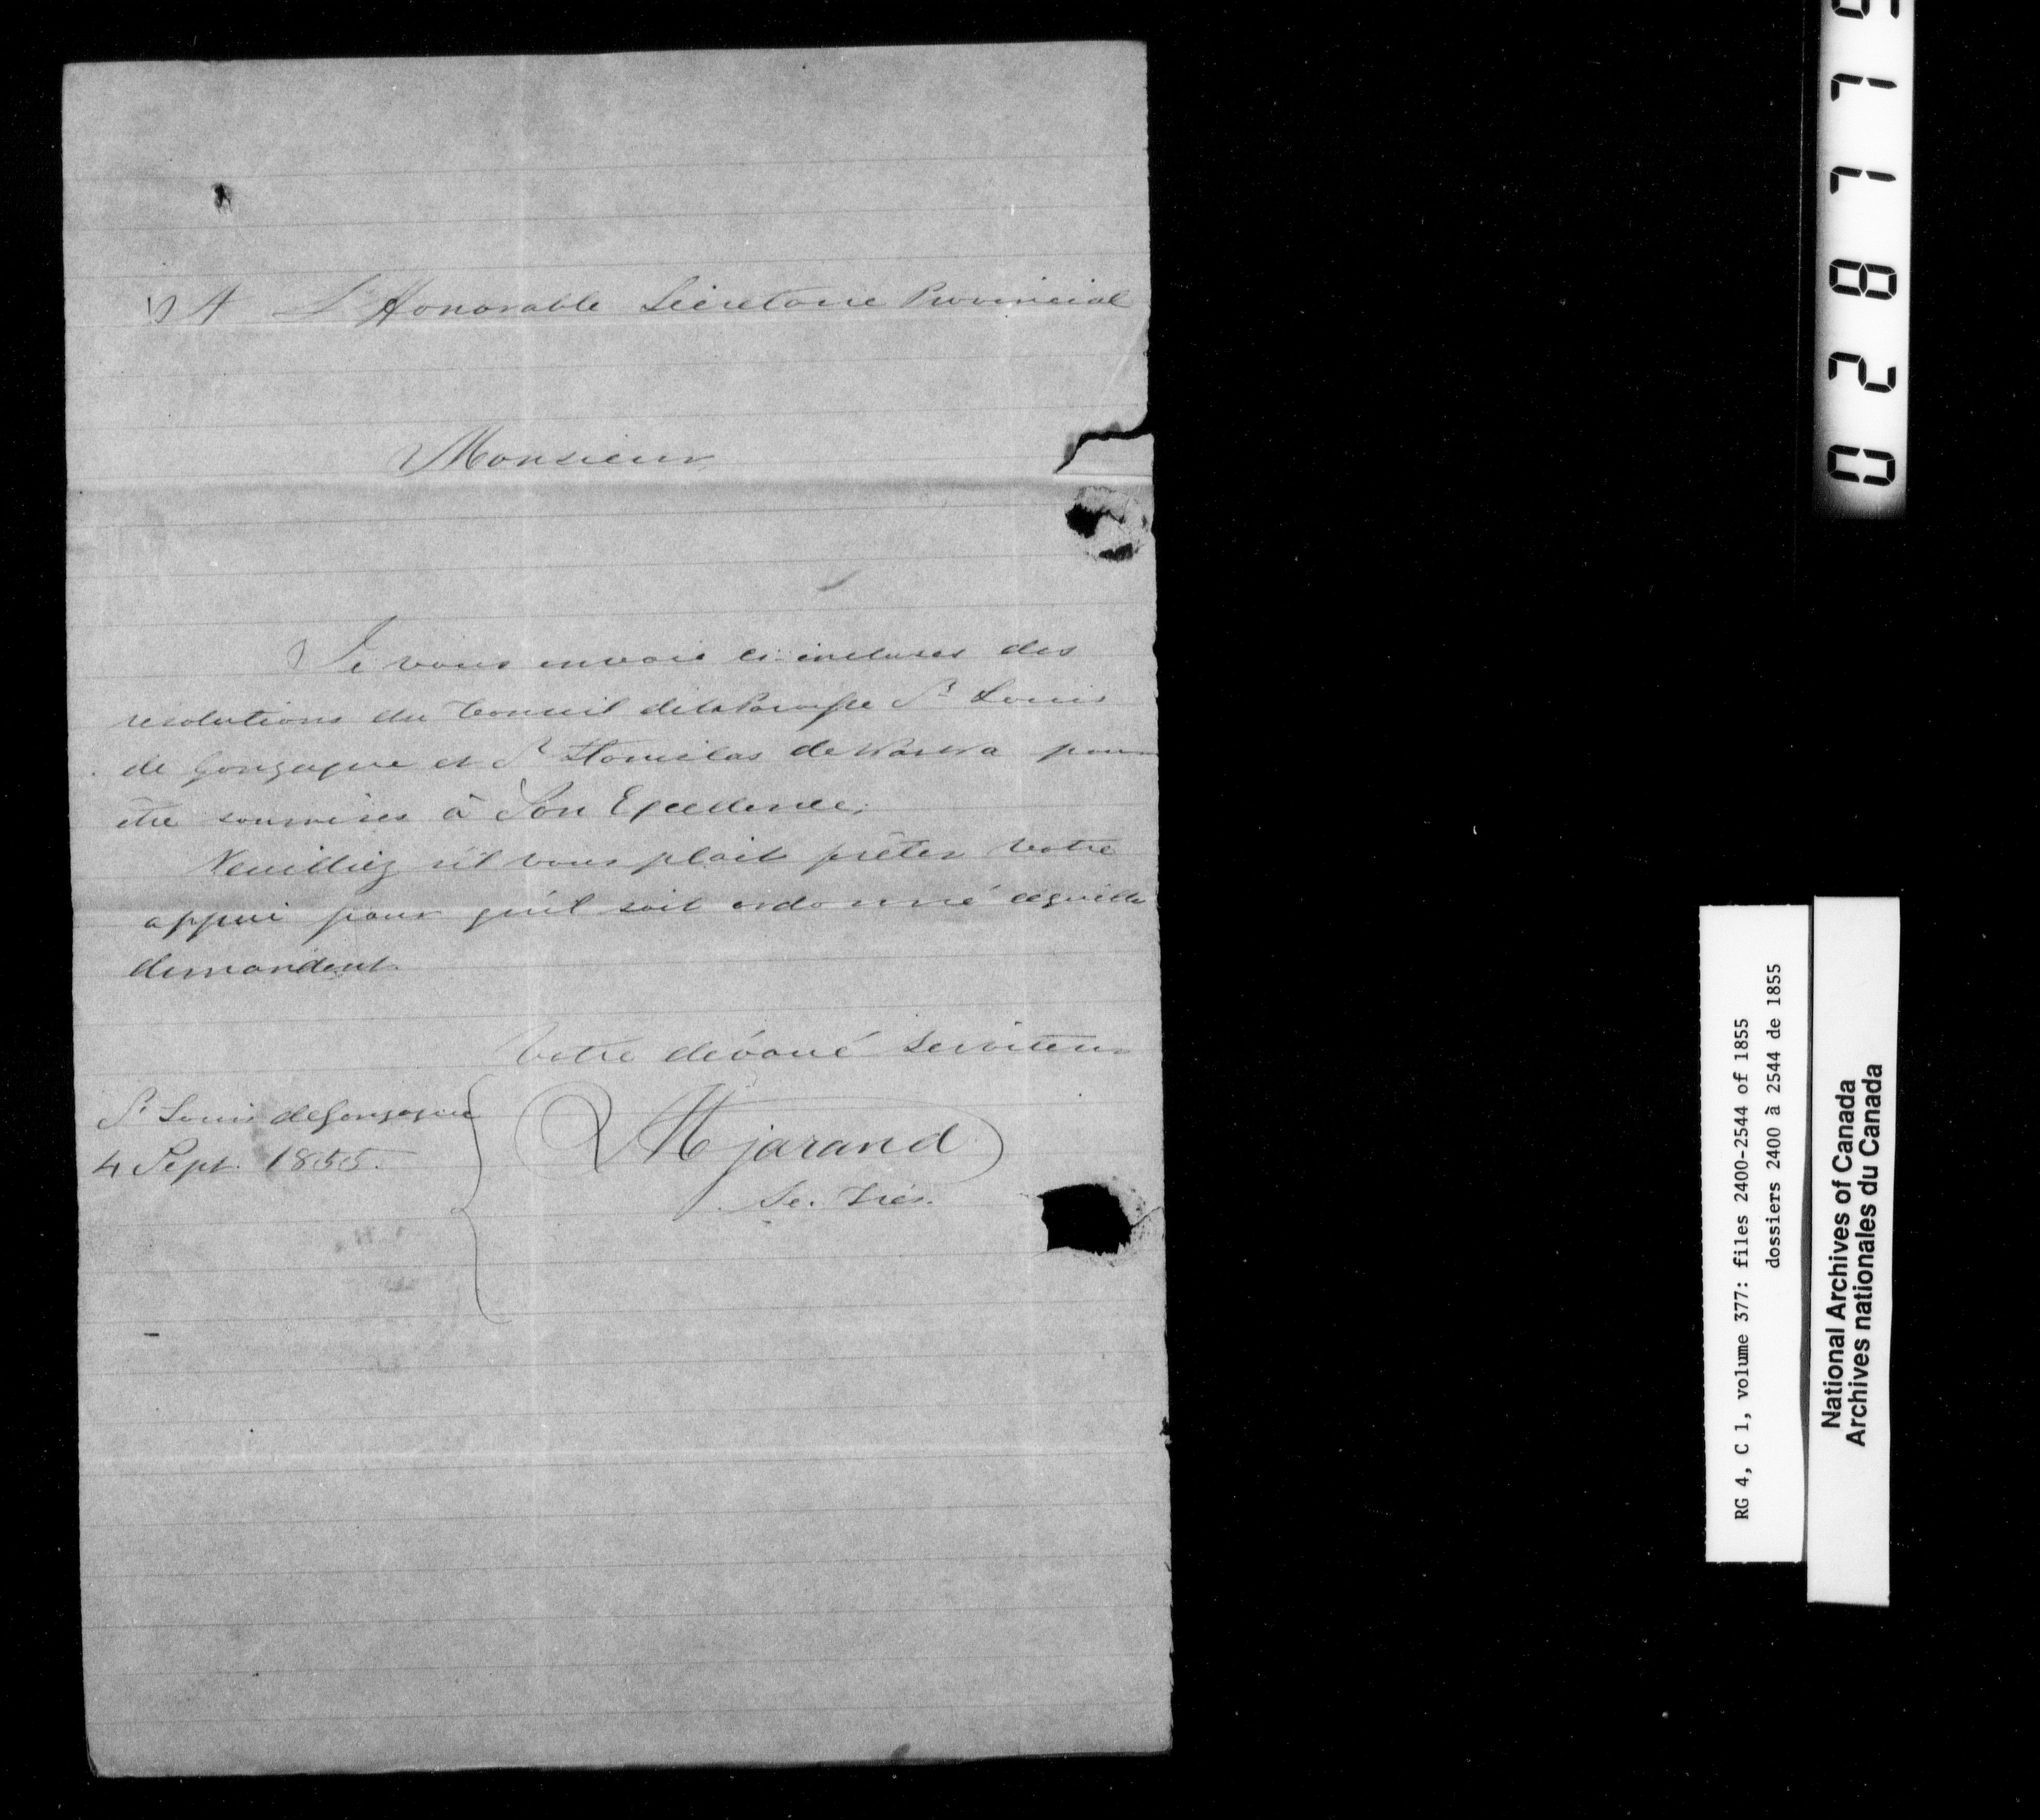 A L'Honorable Sécretaire Provincial
Monsieur
Je vous envoie ci-incluses des
resolutions du Conseil dela Paroisse St Louis
de Gonzague et St Stanislas de Kostka pour
être soumises à Son Excellence,
Veuilliez s'il vous plait prêter votre
appui pour qu'il soit ordonné cequ'elle
demandent
Votre dévoué serviteur
St Louis de Gonzague
4 Sept. 1855.
jarand
Se. Trés.
028775
RG 4, C 1, volume 377: files 2400-2544 of 1855
dossiers 2400 à 2544 de 1855
National Archives of Canada
Archives nationales du Canada